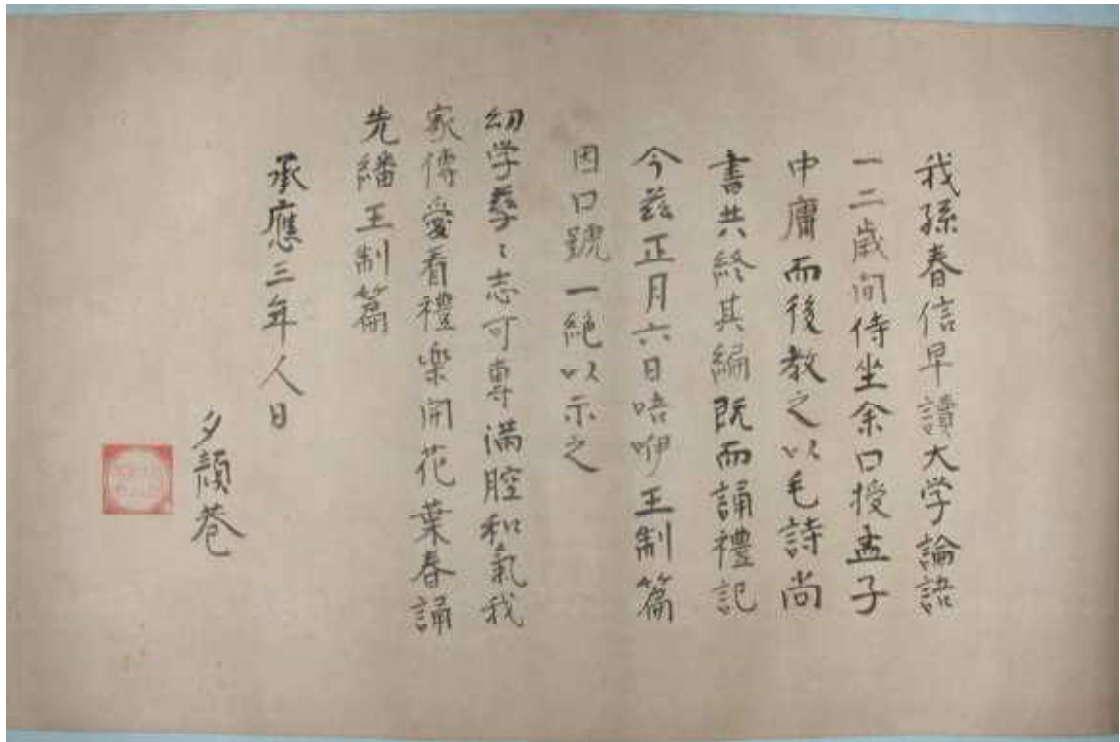 我孫春信早讀大学論語
一二歳間侍坐余口授孟子
中庸而後教之以毛詩尚
書共終其編既而誦禮記
今茲正月六日唔咿王制篇
因口號一絶以示之
幼学孳〻志可専満腔和氣我
家傳愛看禮楽開花葉春誦
先繙王制篇
承應三年人日
夕顔巷